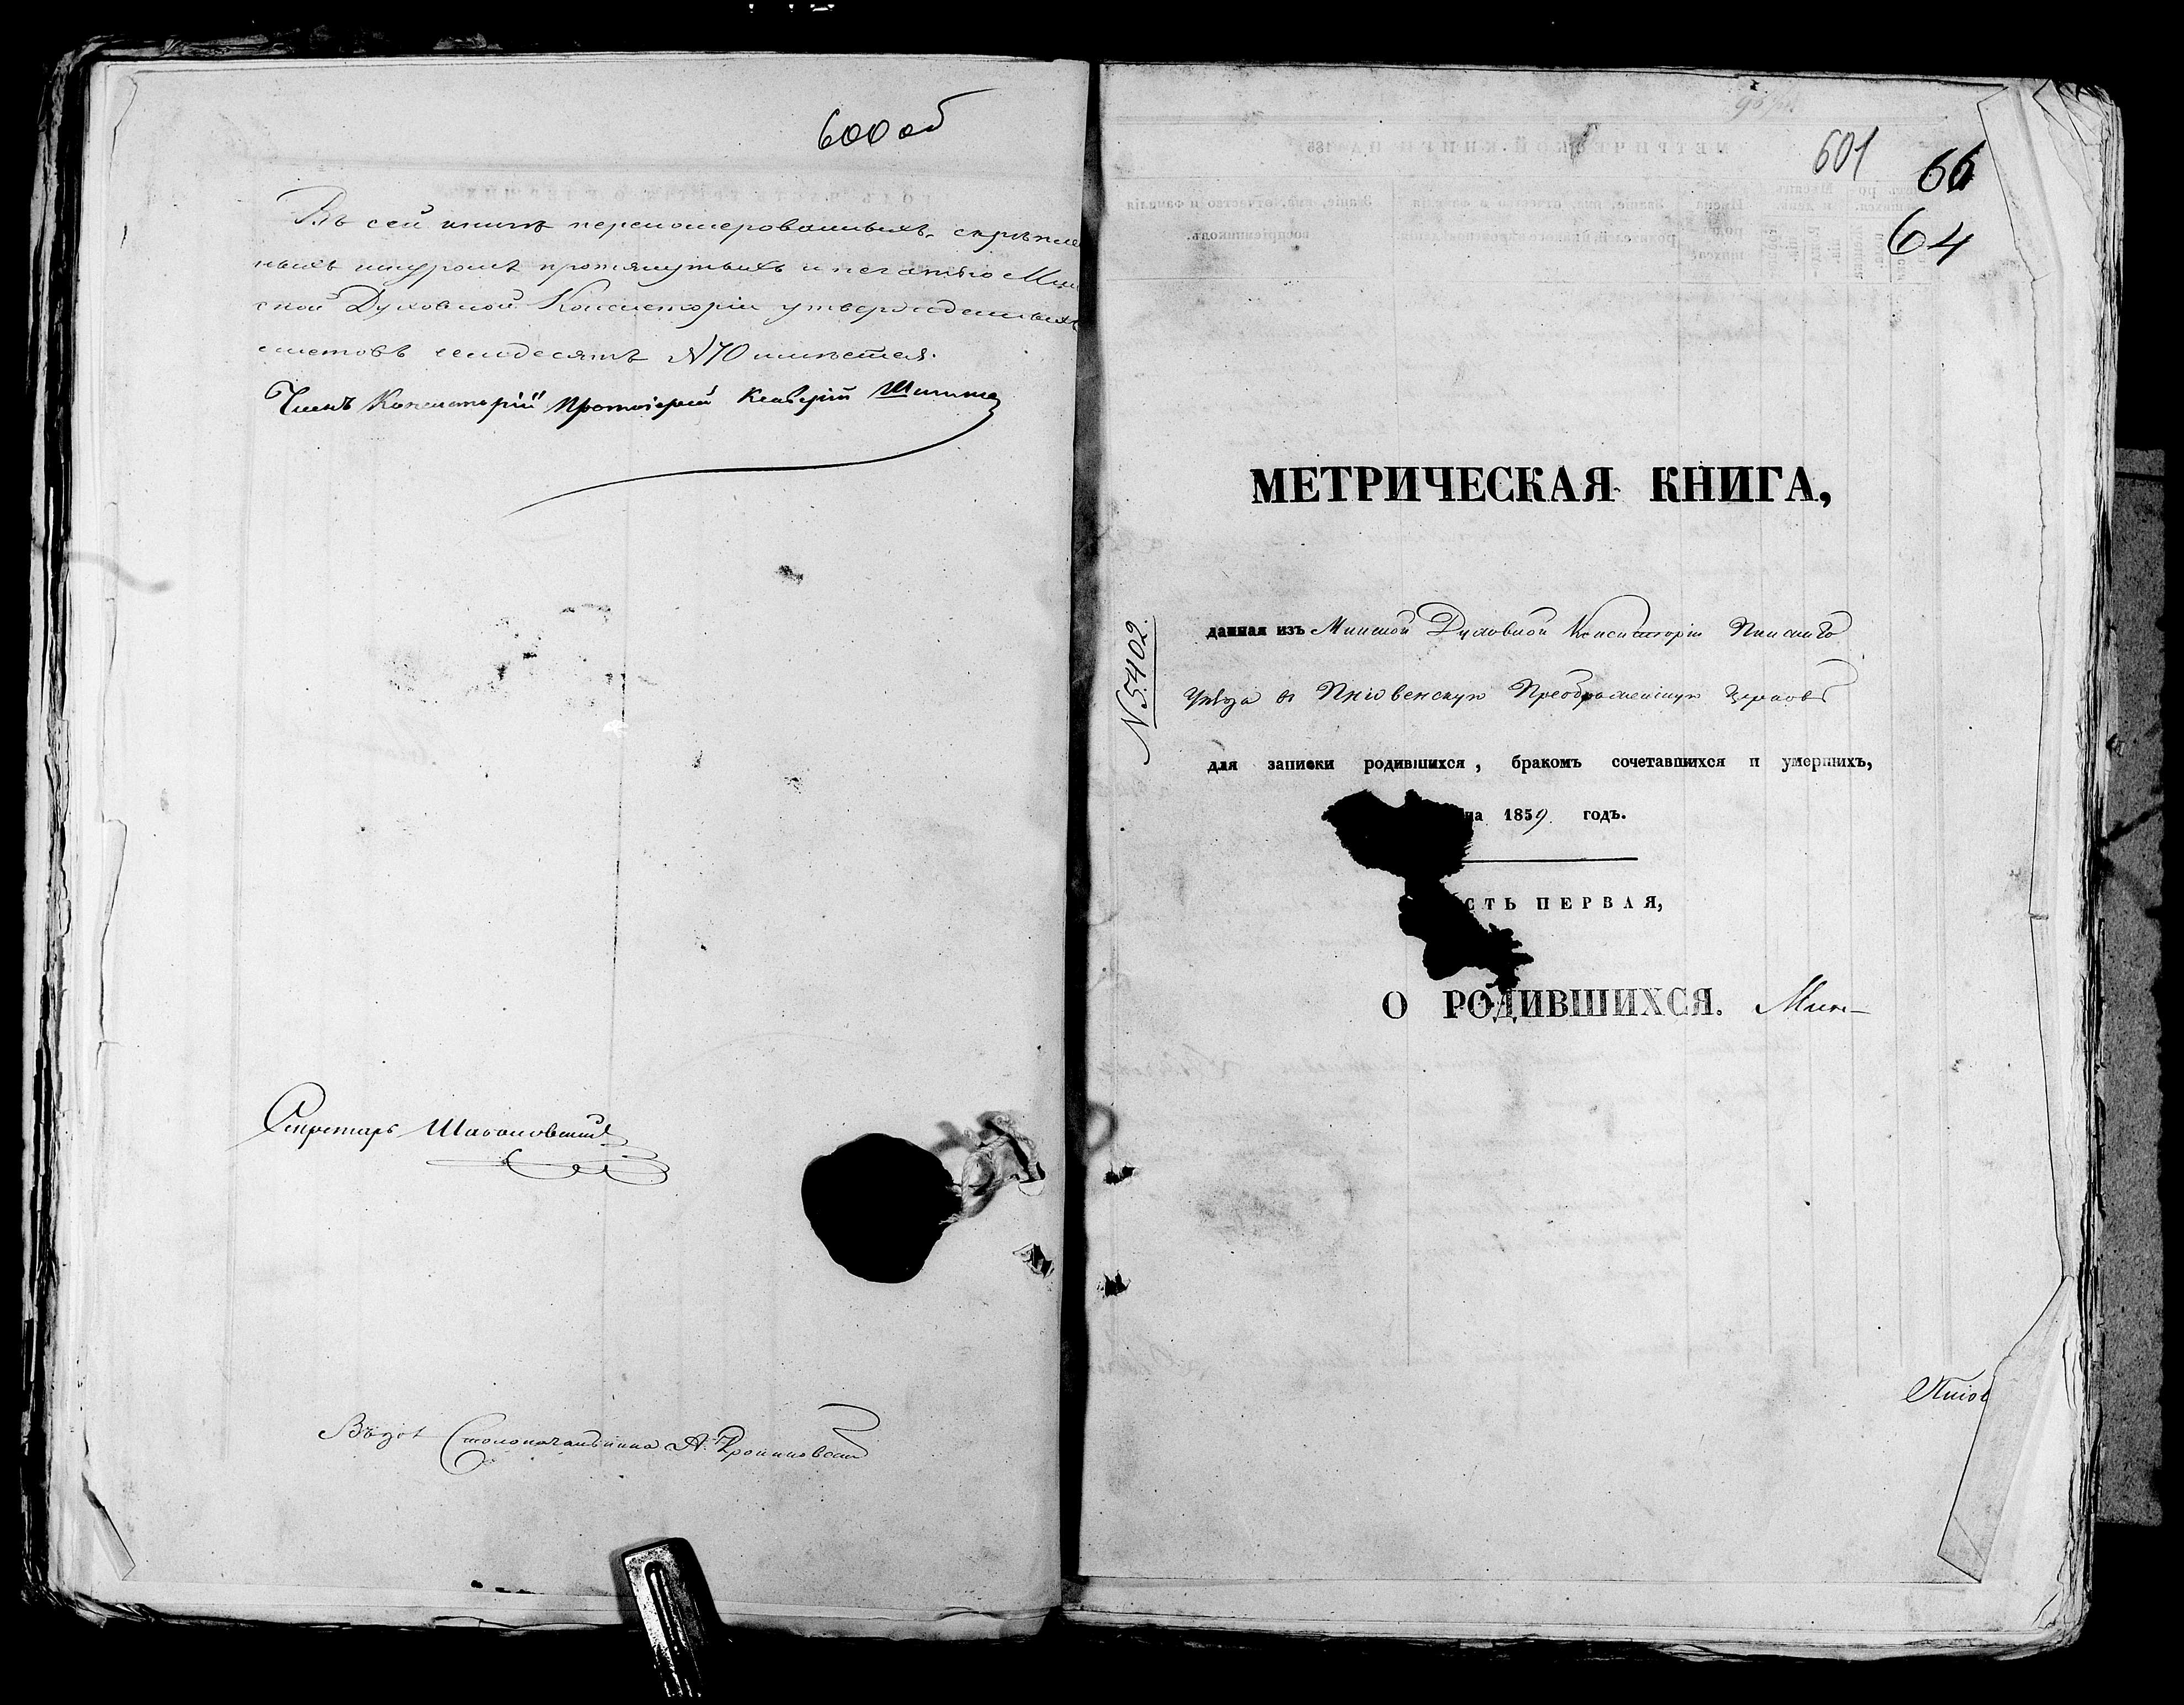 600 об
Въ сей книгѣ перенумерованныхъ, скрѣплен
ныхъ шнуромъ протянутыхъ и печатью Мин
ской Духовной Консисторіи утвержденныхъ
листовъ семдесятъ N70 имѣется.
Членъ Консисторіи Протоіерей
Секретарь
Столоначальника А.
601
66
64
МЕТРИЧЕСКАЯ КНИГА,
N 5402.
данная изъ Минской Духовной Консисторіи Пинскаго
Уѣзда въ Пніовенскую Преображенскую Церковь
для записки родившихся, бракомъ сочетавшихся и умершихъ,
на 1859 годъ.
СТЬ ПЕРВАЯ,
О РОДИВШИХСЯ.
Пніов